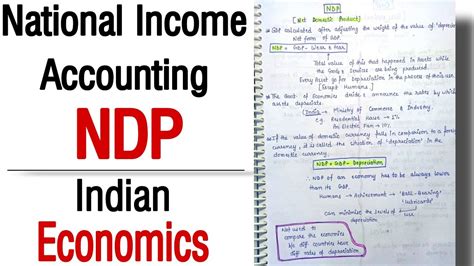 National Income
Accounting
NDP
Indian
Economics
NDP
[Net Domestic Product]
GDP calculated after adjusting the weight of the value of "depreciation"
Net form of GDP.
NDP = GDP - Wear & Tear
Total value of this that happened in Assets while
the Goods & Services are being produced.
Every Asset go for Depreciation in the process of this use.
[Except Humans]
The Govt. of Economics decide & announce the rates by which
assets depreciate.
India - Ministry of Commerce & Industry.
e.g. Residential House → 1%
An Electric Fan → 10%
If the value of domestic currency falls in comparison to a foreign
currency, it is called the situation of "depreciation" in the
domestic currency.
NDP = GDP - Depreciation
NDP of an economy has to be always lower
than its GDP.
Humans → Achievement → 'Ball-Bearing'
'lubricants'
Can minimise the levels of
depreciation
use
Not used to
compare the economies
b/c diff countries have
diff rates of depreciation.